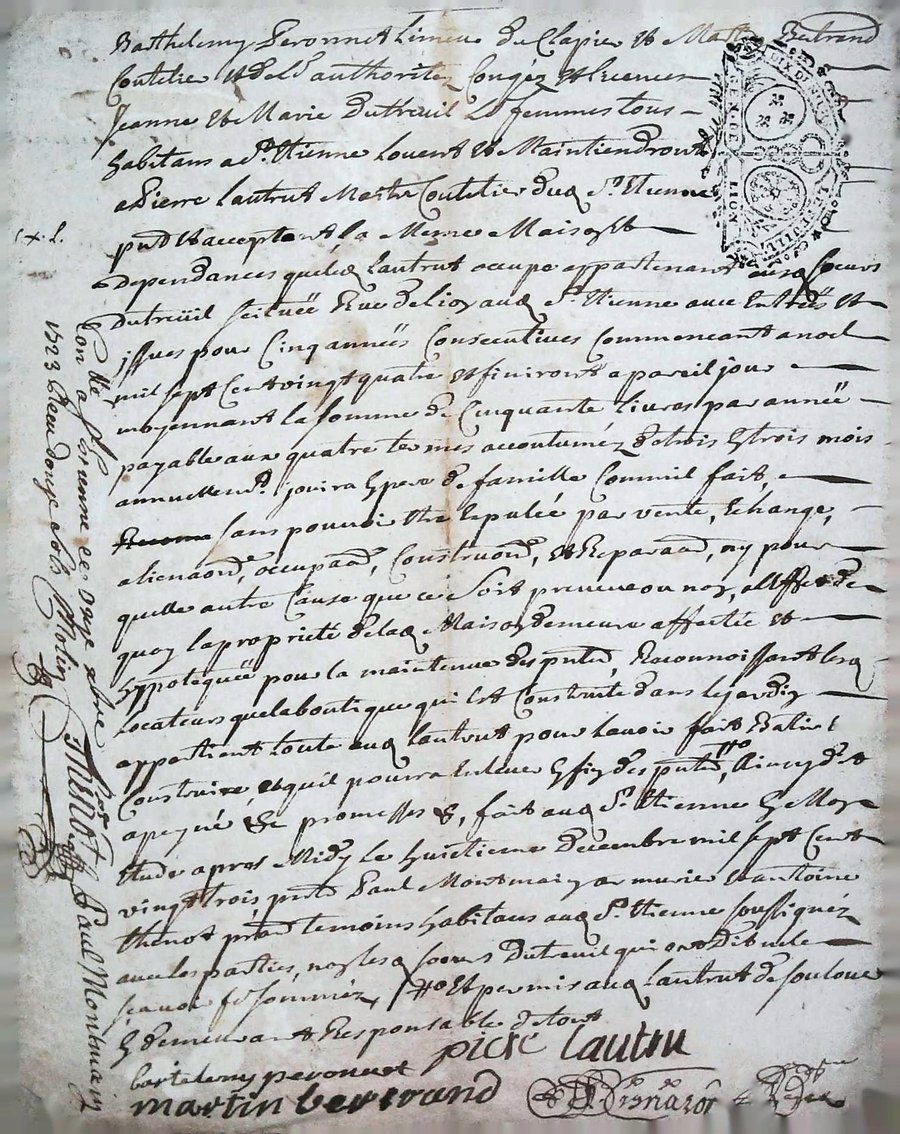 Barthelemy Peronnet Limeur de Clapier et Martin Bertrand
Coutelier et de Ld authorites Congéz et licences
Jeanne et Marie Dutreuil Ls femmes tous
habitans a St. Etienne louent et Maintiendront
a Pierre lautrut Maitre Coutelier dud St. Etienne
pnt et acceptant la Meme Maison et
Dependances queled lautrut occupe appartenant ausd Soeurs
Dutreüil scituëe Rue de lion aud St. Etienne avec Entrées et
issues pour Cinq annéës Consecutives Commencant a noel
mil sept Cent vingt quatre et finiront a pareil jour
moyennant la somme de Cinquante livres par annéë
payable aux quatre termes accoutuméz de trois En trois mois
annuellemt. jouira En pere de famille Comm il fait
sans pouvoir Etre Expulsé par vente, Echange,
alienaond, occupaond, Construond, et Reparaond, ny pour
quelle autre Cause que ce Soit preveue ou non, all Effet de
quoy la proprieté delad Maison demeure affectée et
hyppotequéë pour la maintenue des pntes, Reconnoissant lesd
Locateurs que la boutique qui Est Construite dans le jardin
appartient toute aud lautrut pour lavoir fait Batir &
Construire et quil pourra Enlever En fin des pntes, Ainsy
promesses &, fait aud St. Etienne En Mon
Etude apres Midy le huitieme Decembre mil sept Cent
vingt trois pnts Paul Montmain armurier et antoine
thenot temoins habitans aud St. Etienne soussignéz
avec les parties, non lesd soeurs Dutreuil qui ont dit ne le
scavoir Et permis aud lautrut de souloue
En demeurant Responsable de tout
piere lautru
bartelemy peronnet
martin bertrand
Con lé a St Etienne ce
1723 Reçu douze sols
Thenot
Paul Montmain
GEN. DE LION